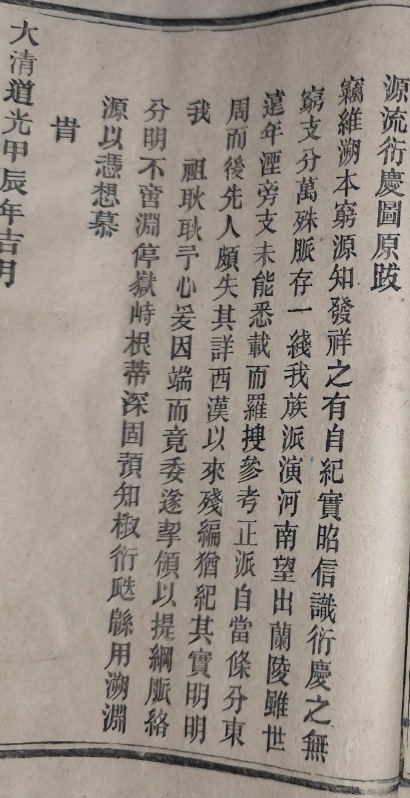 源流衍慶圖原跋
竊維溯本窮源知發祥之有自紀實昭信識衍慶之無
窮支分萬殊脈存一綫我族派演河南望出蘭陵雖世
遠年湮旁支未能悉載而羅搜參考正派自當條分東
周而後先人頗失其詳西漢以來殘編猶紀其實明明
我祖耿耿于心爰因端而竟委遂挈領以提綱脈絡
分明不啻淵停嶽峙根蒂深固預知椒衍瓞緜用溯淵
源以憑想慕
旹
大清道光甲辰年吉月